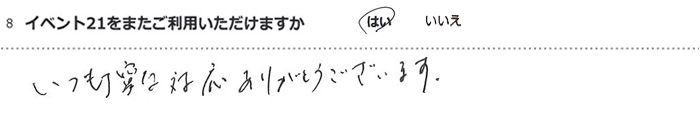 8 イベント21をまたご利用いただけますか はい いいえ
いつも丁寧な対応ありがとうございます.